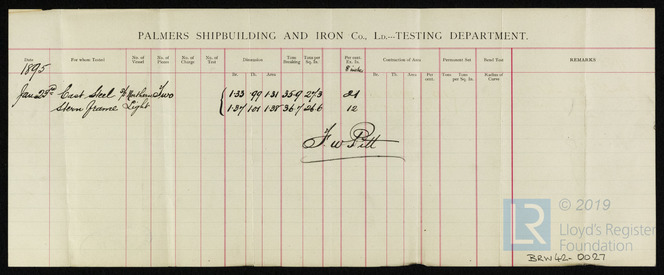 PALMERS SHIPBUILDING AND IRON Co., LD.--TESTING DEPARTMENT.
Date For whom Tested No. of Vessel No. of Pieces No. of Charge No. of Test Dimension Tons Breaking Tons per Sq. In. Per cent. Ex. In. 8 inches Contraction of Area Permanent Set Bend Test REMARKS
Br. Th. Area Br. Th. Area Per cent. Tons Tons per Sq. In. Radius of Curve
1895
Jany 23rd Cast Steel Two 1.33 .99 1.31 35.9 27.3 21
Stern Frame Light 1.37 1.01 1.38 36.7 26.6 12
F W Pitt
© 2019
LR Lloyd's Register
Foundation
BRW42-0027